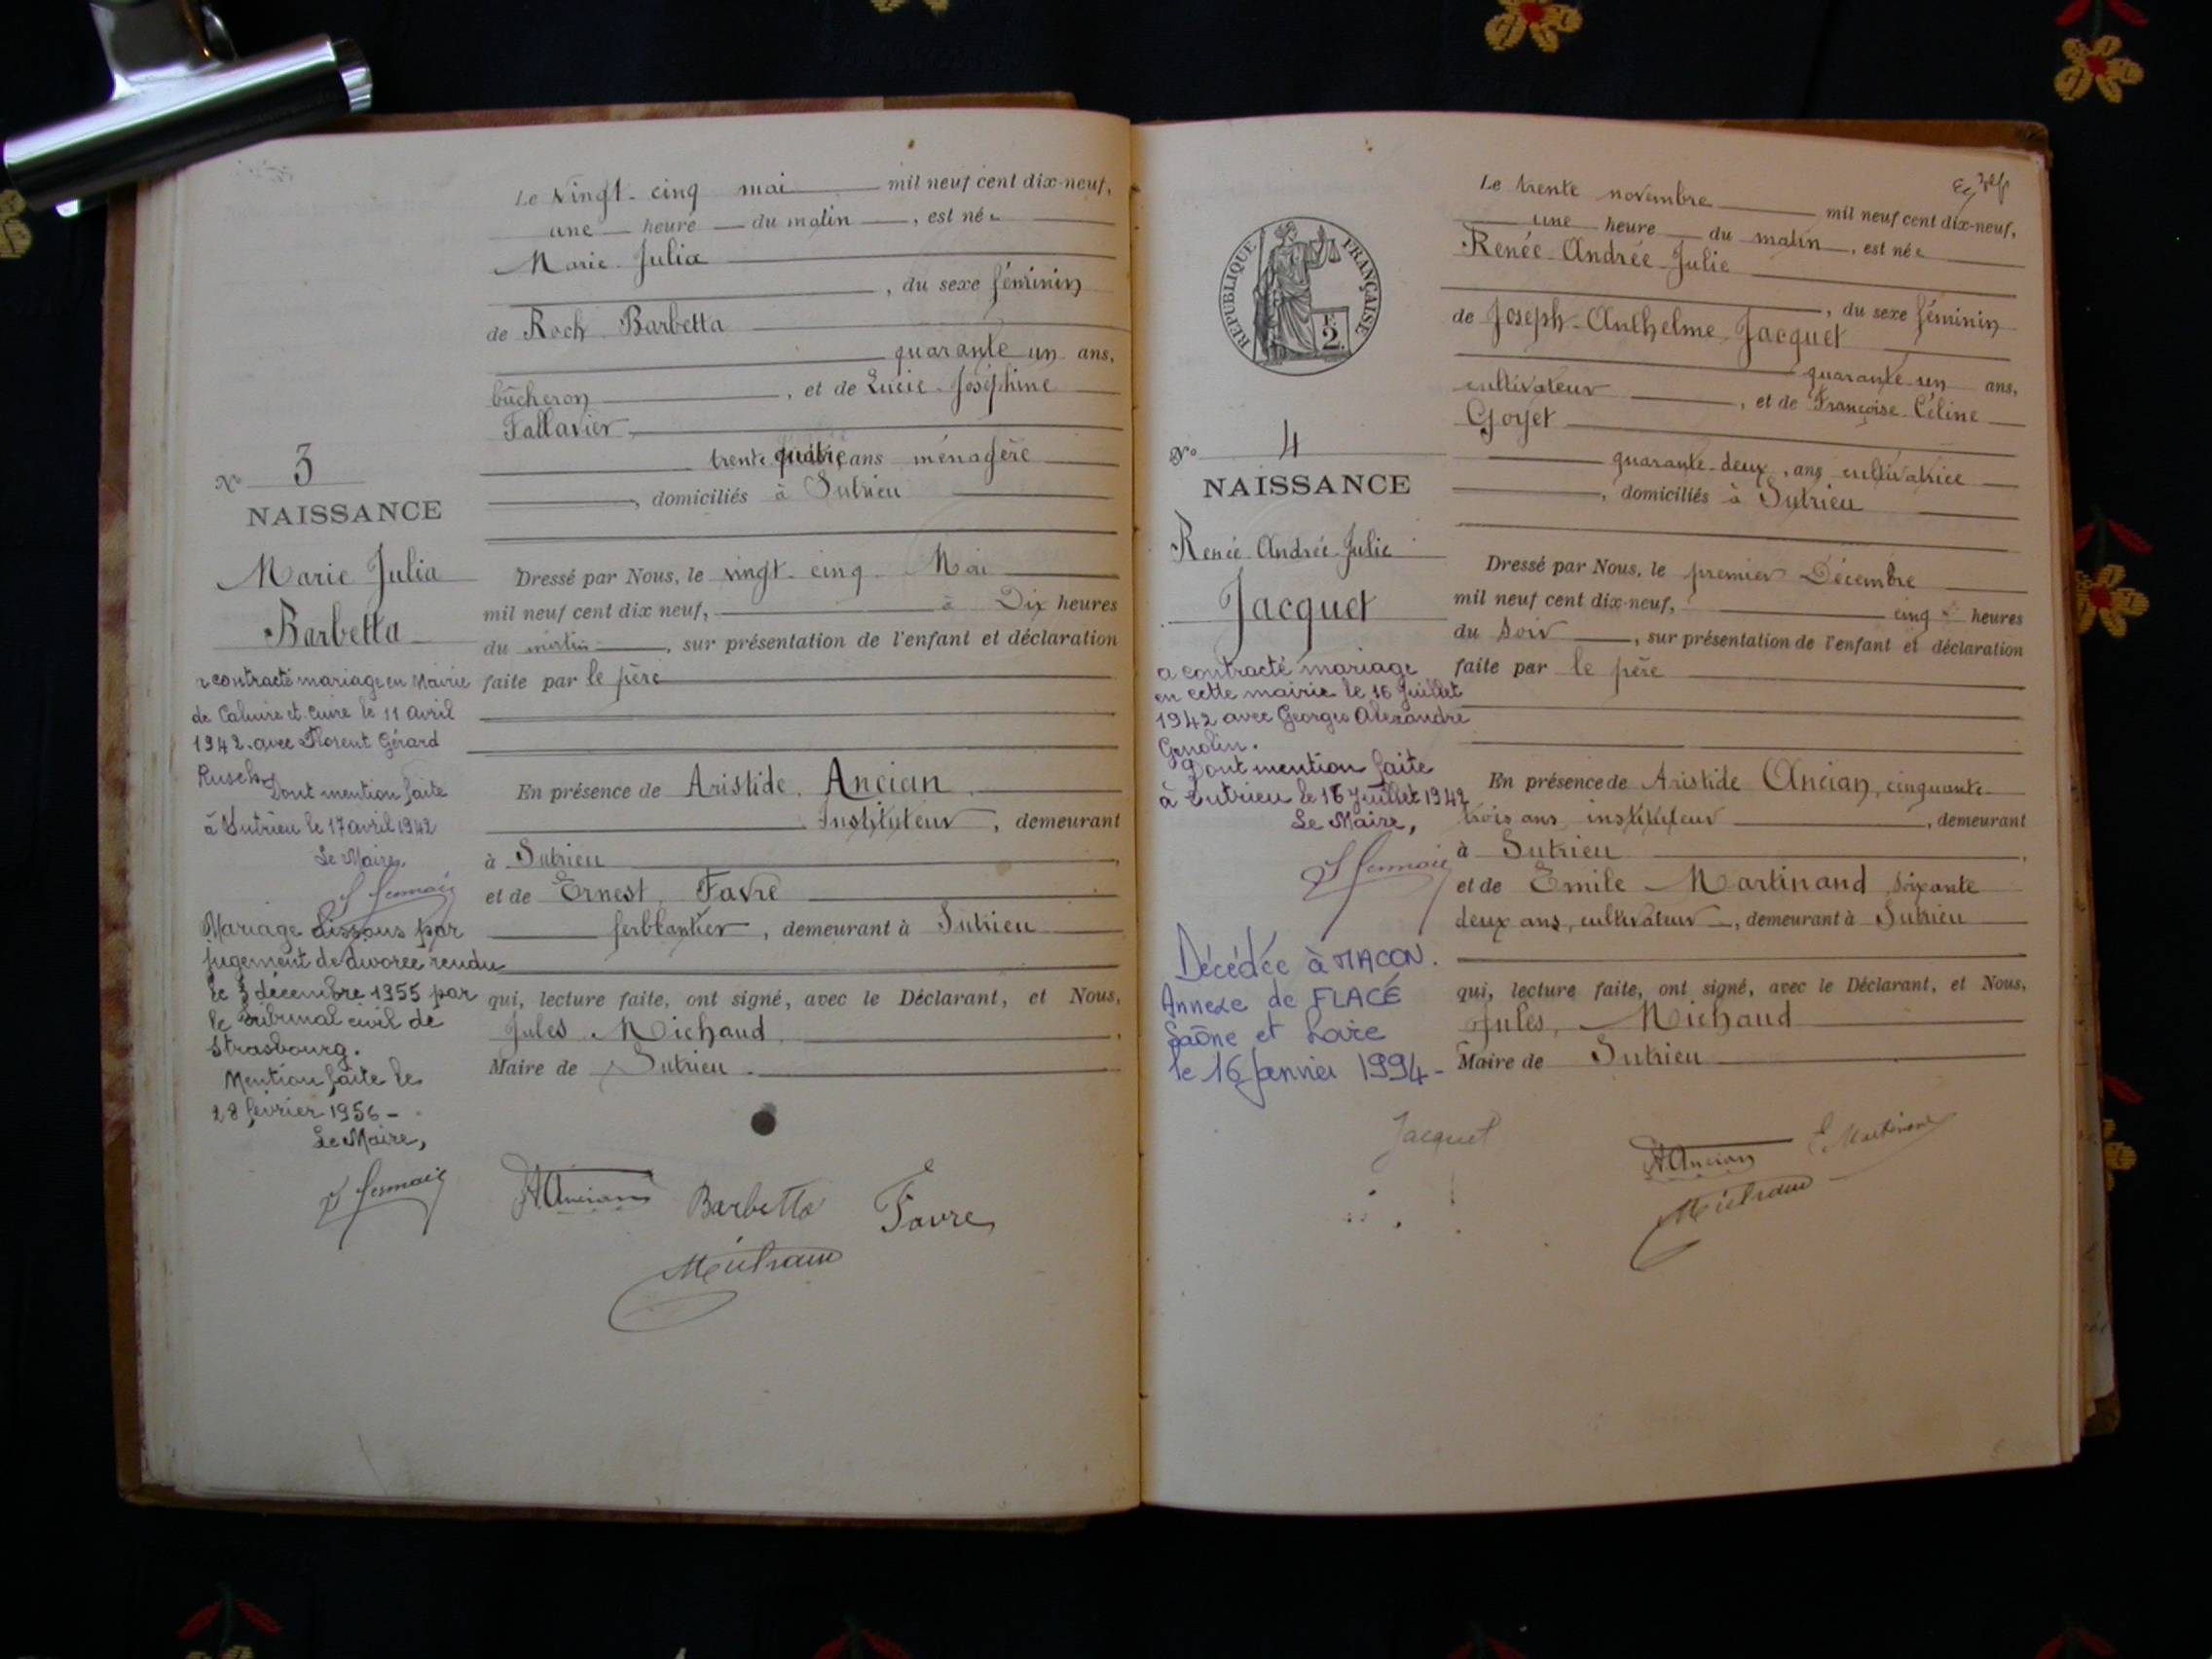 Le vingt-cinq mai mil neuf cent dix-neuf,
une heure du matin, est née
Marie Julia
, du sexe féminin
de Roch Barbetta
quarante un ans,
bûcheron, et de Lucie Joséphine
Fallavier
trente quatre ans ménagère
, domiciliés à Sutrieu
Nº 3
NAISSANCE
Marie Julia
Barbetta
Dressé par Nous, le vingt-cinq Mai
mil neuf cent dix neuf, à Dix heures
du matin, sur présentation de l'enfant et déclaration
faite par le père
a contracté mariage en Mairie
de Caluire et Cuire le 11 avril
1942 avec Florent Gérard
Rusch
Dont mention faite
à Sutrieu le 17 avril 1942
Le Maire
En présence de Aristide Ancian
Instituteur, demeurant
à Sutrieu,
et de Ernest Favre
ferblantier, demeurant à Sutrieu
Mariage dissous par
jugement de divorce rendu
le 3 décembre 1955 par
le Tribunal civil de
Strasbourg.
Mention faite le
28 février 1956 -
Le Maire,
qui, lecture faite, ont signé, avec le Déclarant, et Nous,
Jules Michaud,
Maire de Sutrieu.
A Ancian Barbetta Favre
Michaud
Le trente novembre mil neuf cent dix-neuf,
une heure du matin, est née
Renée Andrée Julie
, du sexe féminin
de Joseph-Anthelme Jacquet
quarante-un ans,
cultivateur, et de Françoise Céline
Goyet
quarante-deux ans cultivatrice
, domiciliés à Sutrieu
REPUBLIQUE FRANÇAISE
F.
2.
Nº 4
NAISSANCE
Renée Andrée Julie
Jacquet
Dressé par Nous, le premier Décembre
mil neuf cent dix-neuf, cinq heures
du soir, sur présentation de l'enfant et déclaration
faite par le père
a contracté mariage
en cette mairie le 16 Juillet
1942 avec Georges Alexandre
Dont mention faite
à Sutrieu le 16 Juillet 1942
Le Maire,
En présence de Aristide Ancian, cinquante-
trois ans, instituteur, demeurant
à Sutrieu,
et de Emile Martinand soixante
deux ans, cultivateur, demeurant à Sutrieu
Décédée à MACON.
Annexe de FLACÉ
Saône et Loire
le 16 Janvier 1994-
qui, lecture faite, ont signé, avec le Déclarant, et Nous,
Jules Michaud
Maire de Sutrieu
Jacquet A Ancian E Martinand
Michaud